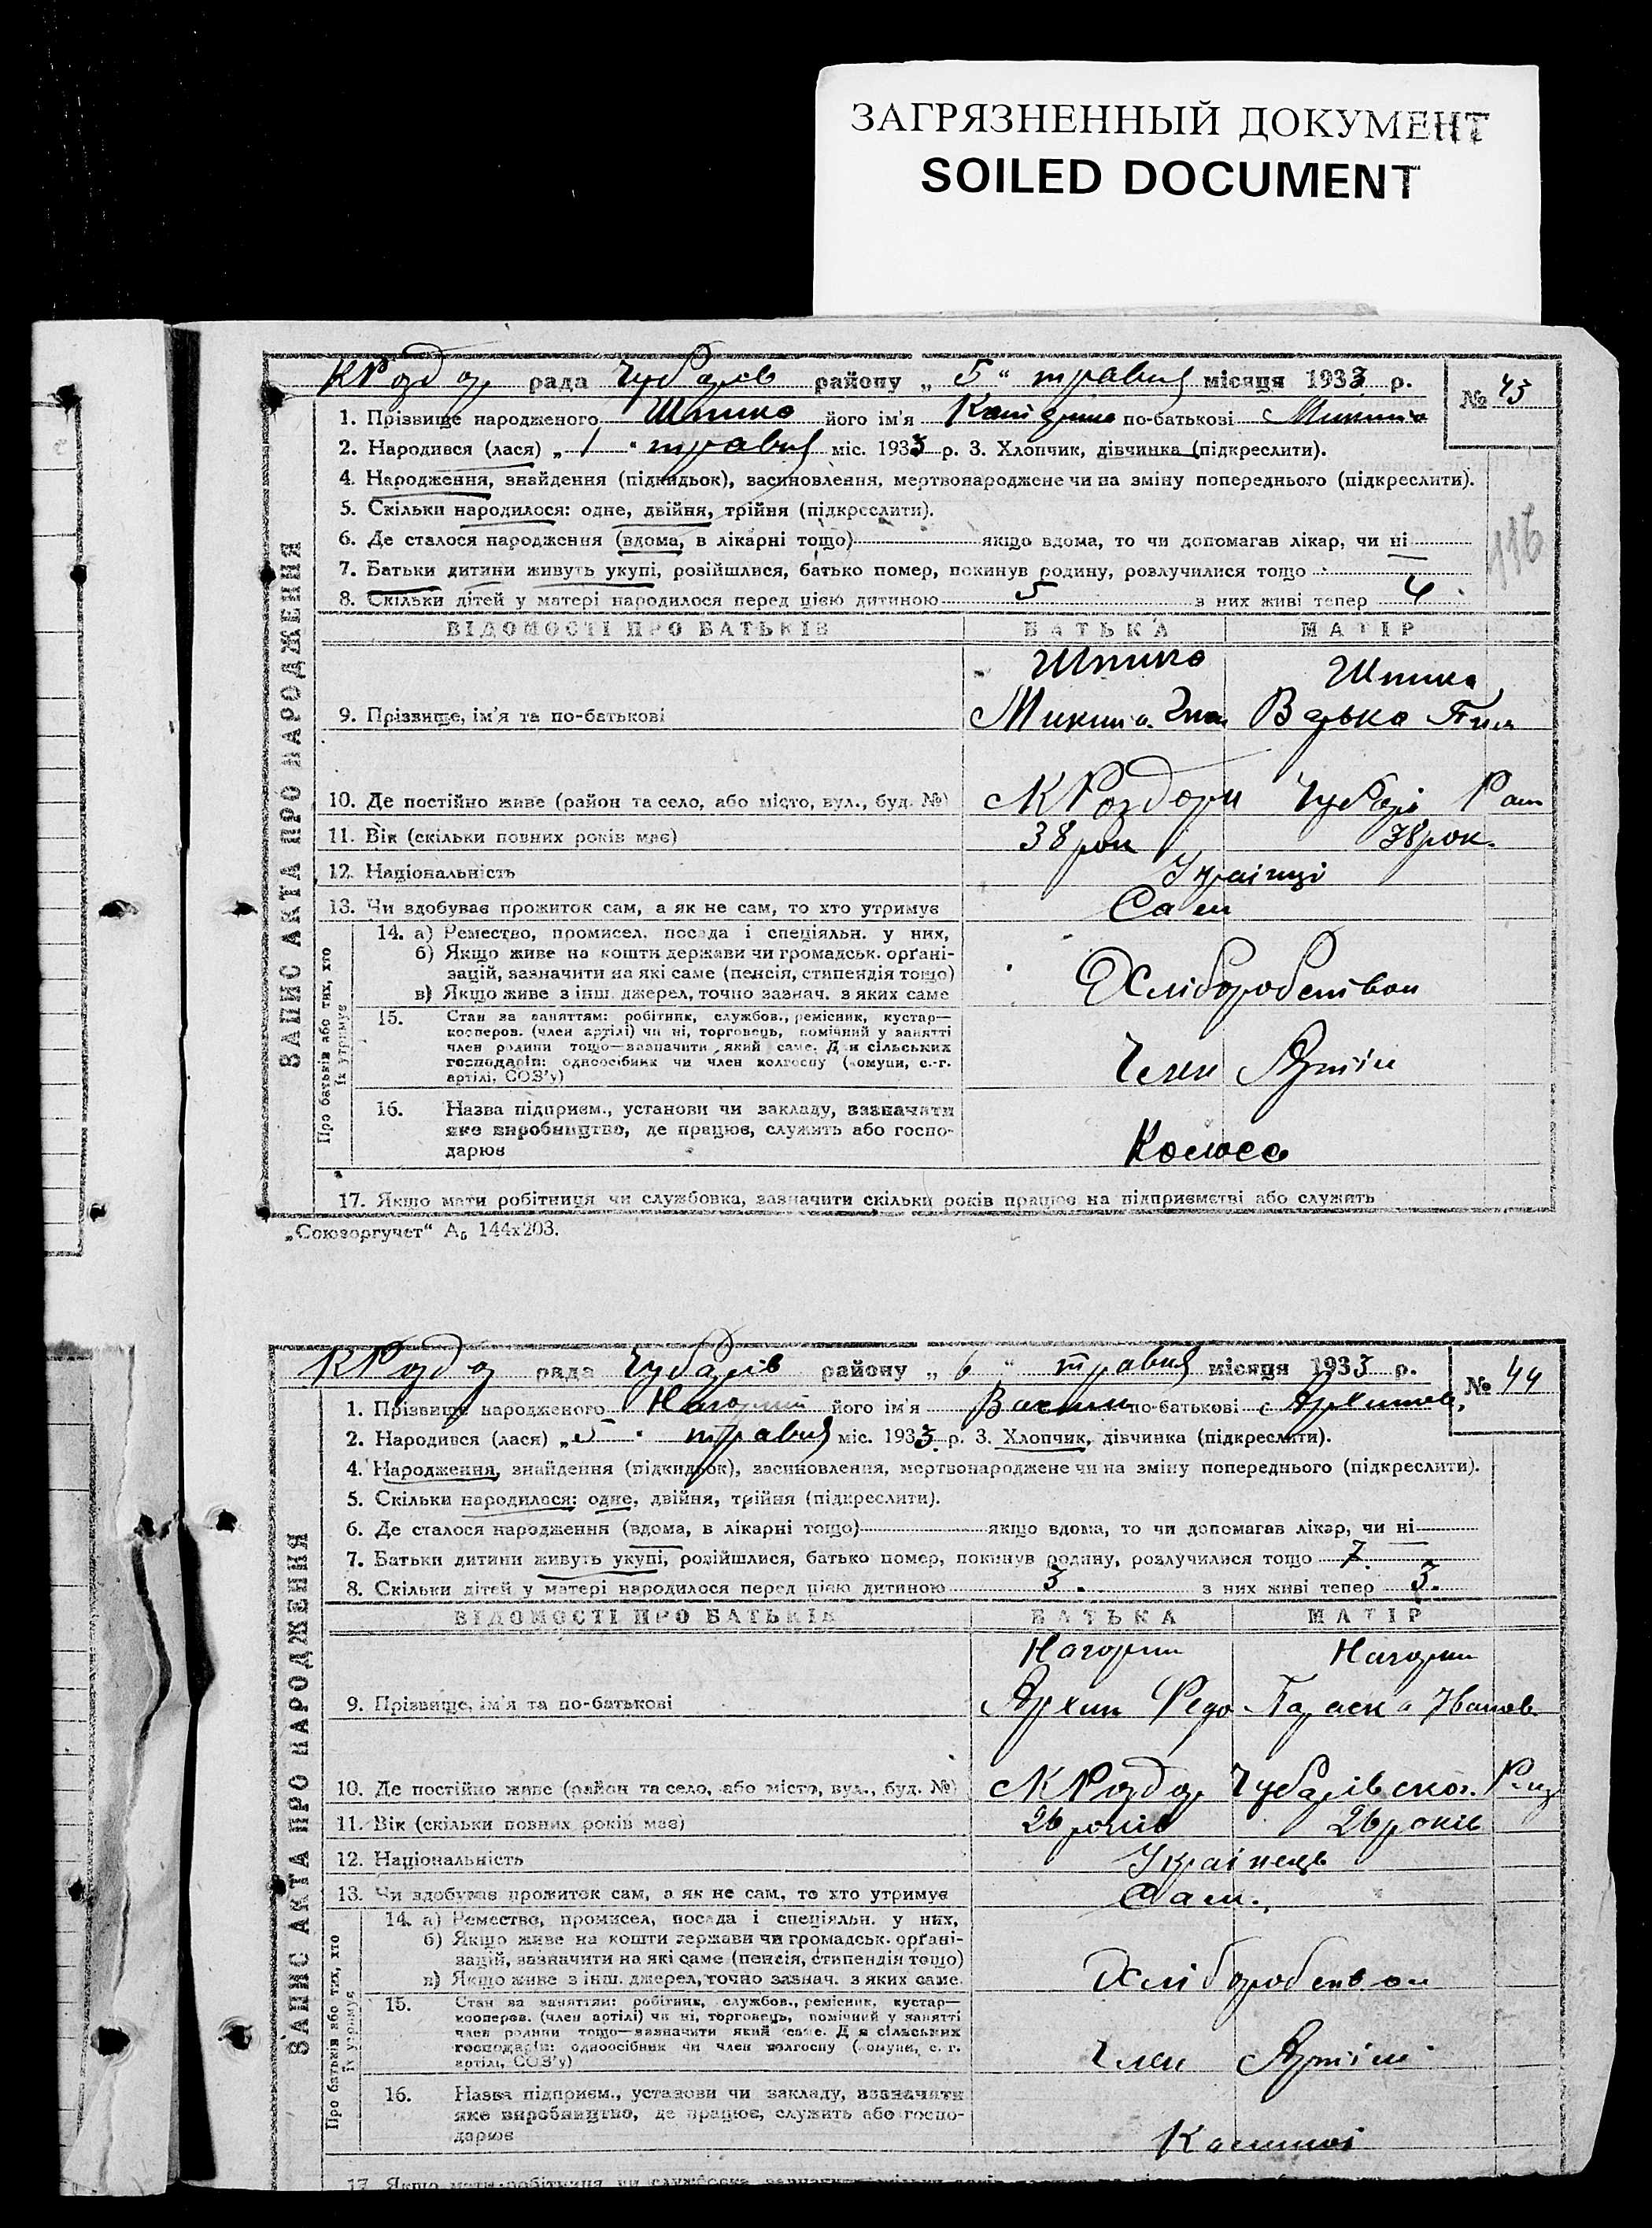 ЗАГРЯЗНЕННЫЙ ДОКУМЕНТ
SOILED DOCUMENT
рада району „ 5 “ травня місяця 1933 р.
№ 43
1. Прізвище народженого Шпика його ім'я по-батькові Микит
2. Народився (лася) „ 1 “ травня міс. 1933 р. 3. Хлопчик, дівчинка (підкреслити).
4. Народження, знайдення (підкидьок), засиновлення, мертвонароджене чи на зміну попереднього (підкреслити).
5. Скільки народилося: одне, двійня, трійня (підкреслити).
6. Де сталося народження (вдома, в лікарні тощо) якщо вдома, то чи допомагав лікар, чи ні
7. Батьки дитини живуть укупі, розійшлися, батько помер, покинув родину, розлучилися тощо
8. Скільки дітей у матері народилося перед цією дитиною 5 з них живі тепер 4
116
ЗАПИС АКТА ПРО НАРОДЖЕННЯ
ВІДОМОСТІ ПРО БАТЬКІВ БАТЬКА МАТІР
Шпика Шпика
9. Прізвище, ім'я та по-батькові Микита Варька
10. Де постійно живе (район та село, або місто, вул., буд. №) К Роздори Чубарі
11. Вік (скільки повних років має) 38 рок 38 рок.
12. Національність Українці
13. Чи здобуває прожиток сам, а як не сам, то хто утримує Сам
Про батьків або тих, хто їх утримує
14. а) Ремество, промисел, посада і спеціяльн. у них,
б) Якщо живе на кошти держави чи громадськ. орґані-
зацій, зазначити на які саме (пенсія, стипендія тощо)
в) Якщо живе з інш. джерел, точно зазнач. з яких саме
Хліборобством
15. Стан за заняттям: робітник, службов., ремісник, кустар—
кооперов. (член артілі) чи ні, торговець, помічний у занятті
член родини тощо—зазначити який саме. Для сільських
господарів: одноосібник чи член колгоспу (комуни, с.-г.
артілі, СОЗ'у)
Член Артіли
16. Назва підприєм., установи чи закладу, зазначити
яке виробництво, де працює, служить або госпо-
дарює
17. Якщо мати робітниця чи службовка, зазначити скільки років працює на підприємстві або служить
„Союзоргучет“ А₅ 144х203.
рада Чубарів району „ 6 “ травня місяця 1933 р.
№ 44
1. Прізвище народженого його ім'я Василь по-батькові Архипов.
2. Народився (лася) „ 5 “ травня міс. 1933 р. 3. Хлопчик, дівчинка (підкреслити).
4. Народження, знайдення (підкидьок), засиновлення, мертвонароджене чи на зміну попереднього (підкреслити).
5. Скільки народилося: одне, двійня, трійня (підкреслити).
6. Де сталося народження (вдома, в лікарні тощо) якщо вдома, то чи допомагав лікар, чи ні
7. Батьки дитини живуть укупі, розійшлися, батько помер, покинув родину, розлучилися тощо 7.
8. Скільки дітей у матері народилося перед цією дитиною 3. з них живі тепер 3.
ЗАПИС АКТА ПРО НАРОДЖЕННЯ
ВІДОМОСТІ ПРО БАТЬКІВ БАТЬКА МАТІР
Нагорни Нагорни
9. Прізвище, ім'я та по-батькові Архип Федо Параска Іванов.
10. Де постійно живе (район та село, або місто, вул., буд. №) К Роздор Чубарівског.
11. Вік (скільки повних років має) 26 років 26 років
12. Національність Українець
13. Чи здобуває прожиток сам, а як не сам, то хто утримує Сам.
Про батьків або тих, хто їх утримує
14. а) Ремество, промисел, посада і спеціяльн. у них,
б) Якщо живе на кошти держави чи громадськ. орґані-
зацій, зазначити на які саме (пенсія, стипендія тощо)
в) Якщо живе з інш. джерел, точно зазнач. з яких саме.
Хліборобством
15. Стан за заняттям: робітник, службов., ремісник, кустар—
кооперов. (член артілі) чи ні, торговець, помічний у занятті
член родини тощо—зазначити який саме. Для сільських
господарів: одноосібник чи член колгоспу (комуни, с. г.
артілі, СОЗ'у)
Член Артіли
16. Назва підприєм., установи чи закладу, зазначити
яке виробництво, де працює, служить або госпо-
дарює